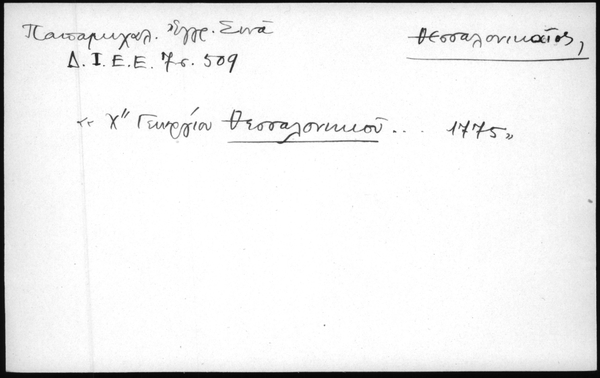 Παπαμιχαλ. Ἔγγρ. Σινᾶ
Θεσσαλονικαῖος,
Δ. Ι. Ε. Ε. 7 σ. 509
« Χ" Γεωργίου Θεσσαλονικιοῦ . . . . 1775 »